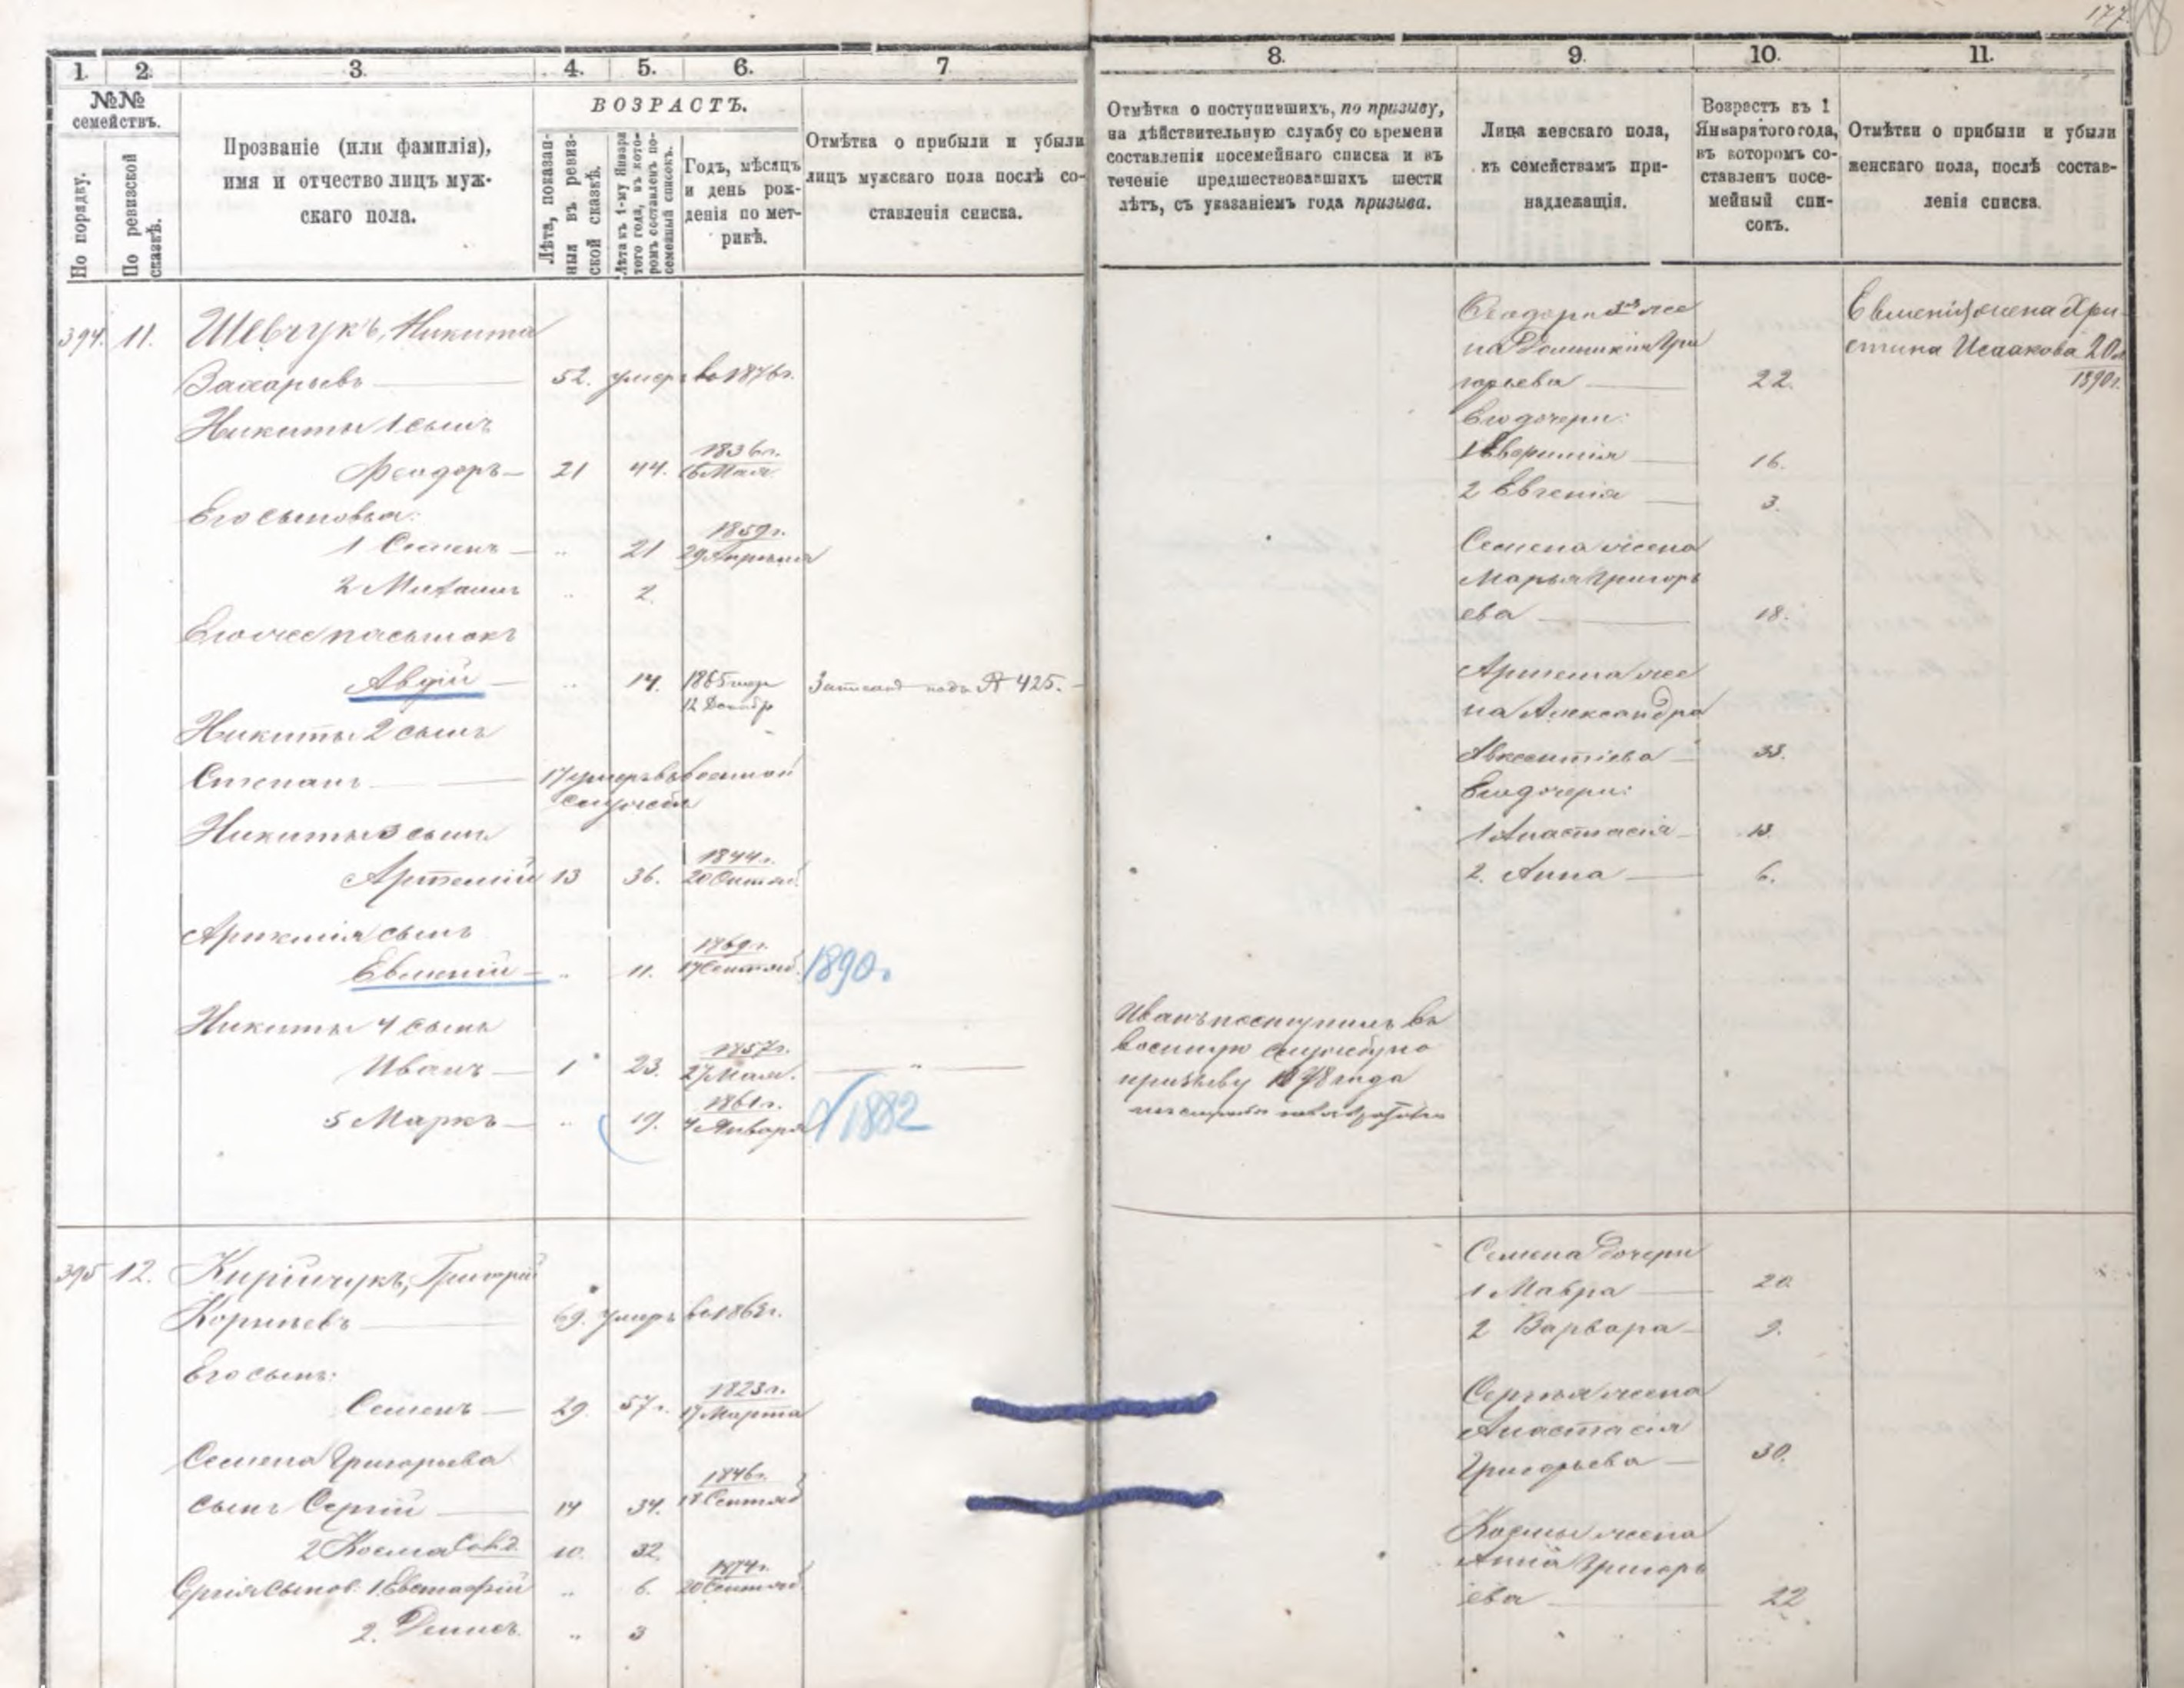 177
1. 2. 3. 4. 5. 6. 7
№№ семействъ.
По порядку.
По ревизской сказкѣ.
Прозваніе (или фамилія),
имя и отчество лицъ муж-
скаго пола.
ВОЗРАСТЪ.
Лѣта, показан-
ныя въ ревиз-
ской сказкѣ.
Лѣта къ 1-му Января
того года, въ кото-
ромъ составленъ по-
семейный списокъ.
Годъ, мѣсяцъ
и день рож-
денія по мет-
рикѣ.
Отмѣтка о прибыли и убыли
лицъ мужскаго пола послѣ со-
ставленія списка.
394. 11. Шевчукъ, Никита
Захарьевъ 52. умеръ въ 1876г.
Никиты 1 сынъ
Феодоръ 21 44. 1836г. 16 Мая
Его сыновья:
1 Семенъ " 21 1859г. 29 Апрѣля
2 Михаилъ " 2.
Его же пасынокъ
Авдій " 14. 1865 года 12 Декабр Записанъ подъ № 425.
Никиты 2 сынъ
Степанъ 17 умеръ въ военной
службѣ
Никиты 3 сынъ
Артемій 13 36. 1844г. 20 Октяб.
Артемія сынъ
Евмений " 11. 1869г. 17 Сентяб. 1890г.
Никиты 4 сынъ
Иванъ 1 23. 1857г. 27 Мая. "
5 Маркъ " 19. 1861г. 7 Января 1882
395 12. Кирійчукъ, Григорій
Корнѣевъ 69. умеръ въ 1863г.
Его сынъ:
Семенъ 29. 57 г. 1823г. 17 Марта
Семена Григорьева
сынъ Сергій 14 34. 1846г. 18 Сентяб
2 Косма 10. 32.
Сергія сынов. 1. Евстафій " 6. 1874г. 20 Сентяб.
2. Денисъ " 3
8. 9. 10. 11.
Отмѣтка о поступившихъ, по призыву,
на дѣйствительную службу со времени
составленія посемейнаго списка и въ
теченіе предшествовавшихъ шести
лѣтъ, съ указаніемъ года призыва.
Лица женскаго пола,
къ семействамъ при-
надлежащія.
Возрастъ въ 1
Января того года,
въ которомъ со-
ставленъ посе-
мейный спи-
сокъ.
Отмѣтки о прибыли и убыли
женскаго пола, послѣ состав-
ленія списка.
Феодора же
на Домникія Гри
горьева 22.
Его дочери:
1 16.
2 Евгенія 3.
Семена жена
Марья Григорь
ева 18.
Артема же
на Александра
Авксентіева 33.
Его дочери:
1 Анастасія 13.
2. Анна 6.
Евменія жена Хри
стина Исаакова 20 л
1890г.
Иванъ поступилъ въ
военную службу по
призыву 1878 года
Семена дочери
1 Мавра 20.
2 Варвара 9.
Сергія жена
Анастасія
Григорьева 30.
Космы жена
Анна Григорь
ева 22